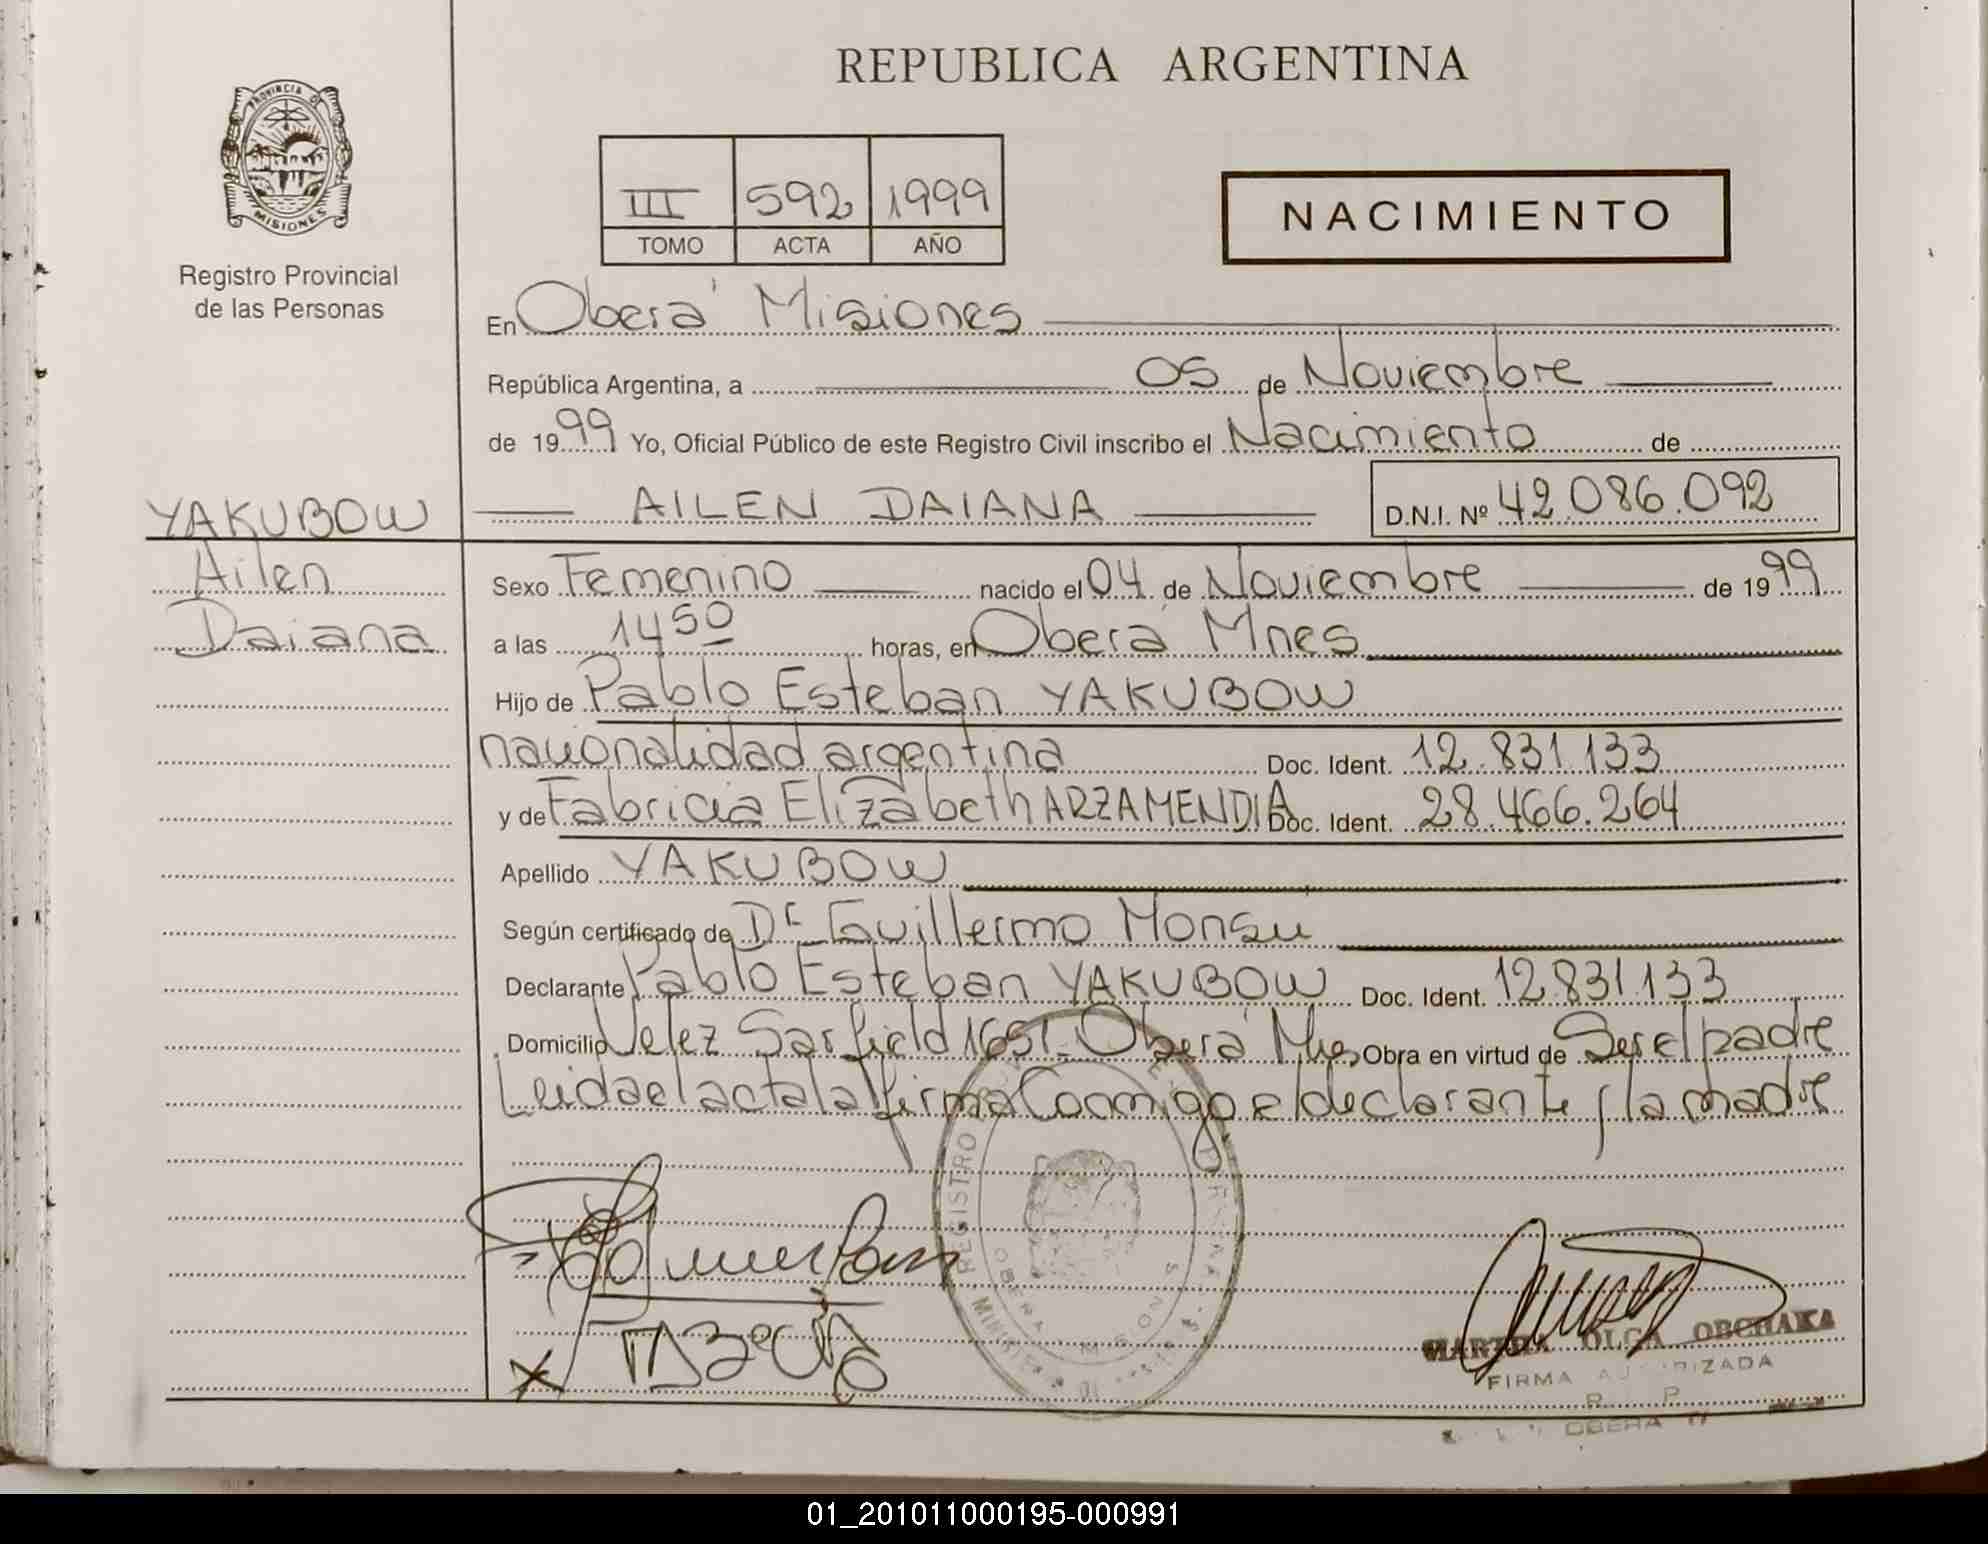 REPUBLICA ARGENTINA
PROVINCIA DE
MISIONES
Registro Provincial
de las Personas
III 592 1999
TOMO ACTA AÑO
NACIMIENTO
En Oberá Misiones
República Argentina, a 05 de Noviembre
de 1999 Yo, Oficial Público de este Registro Civil inscribo el Nacimiento de
AILEN DAIANA D.N.I. Nº 42.086.092
YAKUBOW
Ailen
Daiana
Sexo Femenino nacido el 04 de Noviembre de 1999
a las 14 50 horas, en Oberá Mnes
Hijo de Pablo Esteban YAKUBOW
nacionalidad argentina Doc. Ident. 12.831.133
y de Fabricia Elizabeth ARZAMENDIA Doc. Ident. 28.466.264
Apellido YAKUBOW
Según certificado de Dr Guillermo Monsu
Declarante Pablo Esteban YAKUBOW Doc. Ident. 12.831.133
Domicilio Velez Sarfield 1651 Oberá Mnes Obra en virtud de Ser el padre
Leida el acta la firma Conmigo el declarante y la madre
REGISTRO
OBERA MISIONES
MARTHA OLGA OBCHAKA
FIRMA AUTORIZADA
R. P.
OBERA
01_201011000195-000991